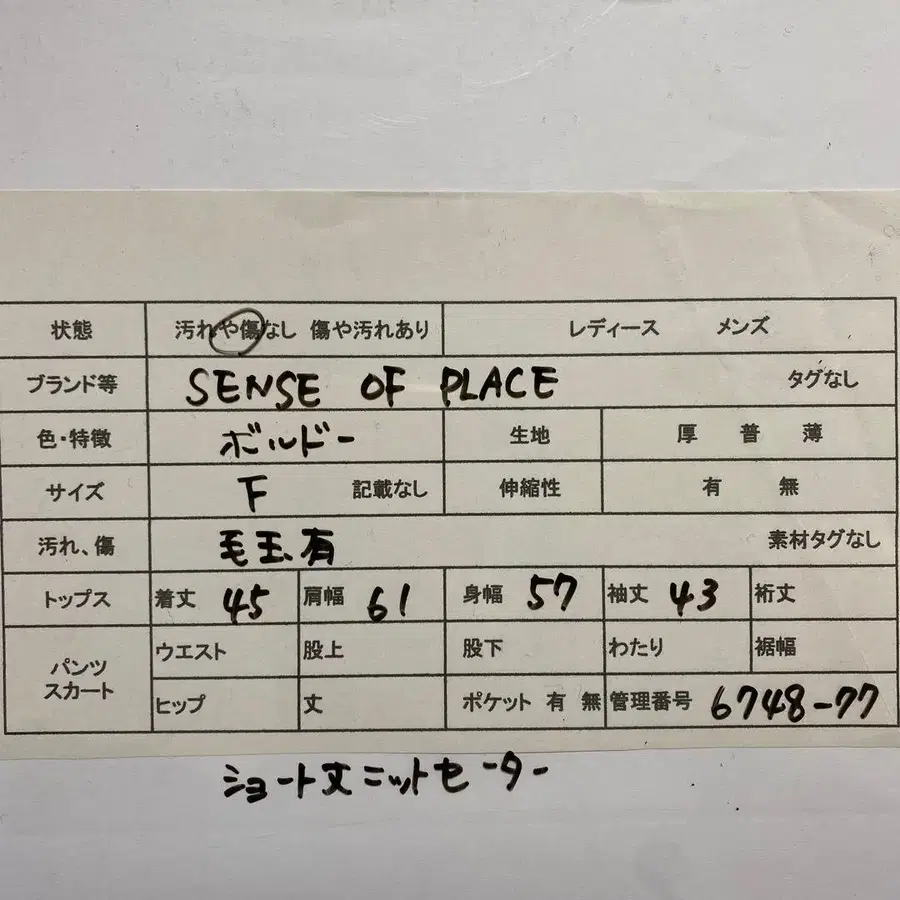 状態 汚れや傷なし 傷や汚れあり レディース メンズ
ブランド等 SENSE OF PLACE タグなし
色・特徴 ボルドー 生地 厚 普 薄
サイズ F 記載なし 伸縮性 有 無
汚れ、傷 毛玉、有 素材タグなし
トップス 着丈 45 肩幅 61 身幅 57 袖丈 43 裄丈
パンツ スカート ウエスト 股上 股下 わたり 裾幅
ヒップ 丈 ポケット 有 無 管理番号 6748-77
ショート丈ニットセーター